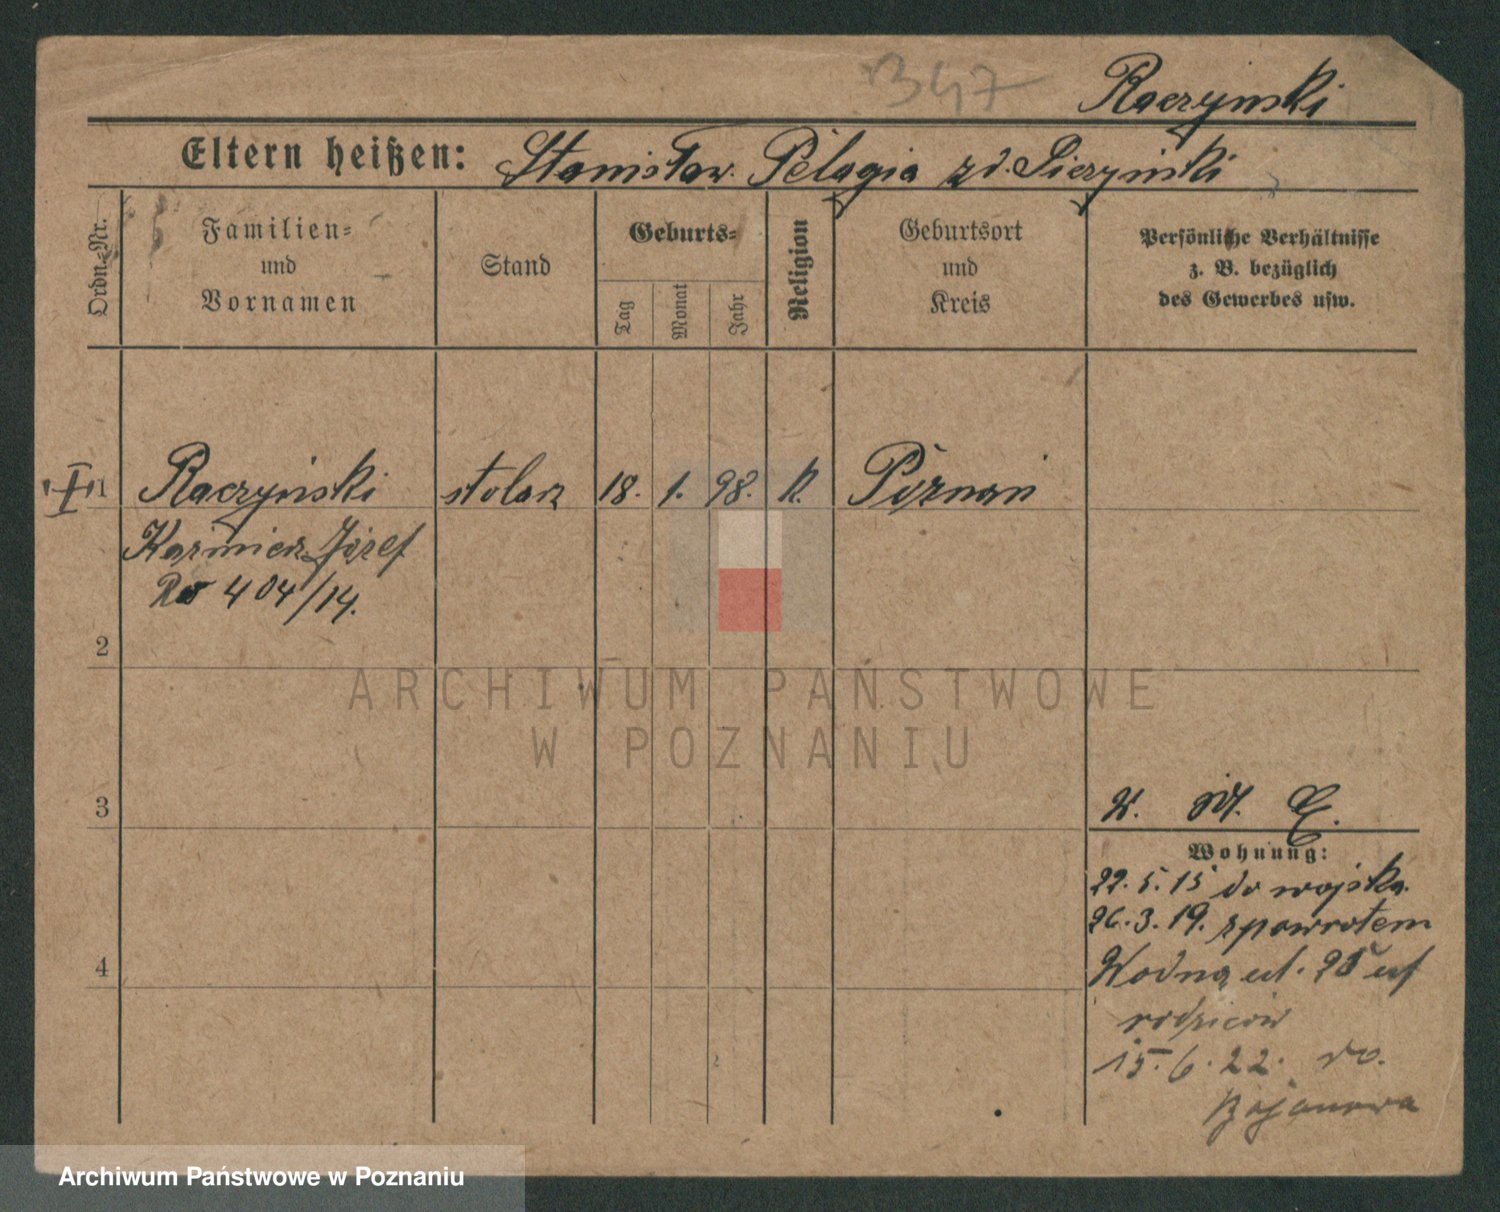 B 347
Raczyński
Eltern heißen: Stanisław. Pelagia zd. Sierzyński
Ordn.-Nr.
Familien-
und
Vornamen
Stand
Geburts-
Tag
Monat
Jahr
Religion
Geburtsort
und
Kreis
Persönliche Verhältnisse
z. B. bezüglich
des Gewerbes usw.
I 1 Raczyński stolarz 18. 1. 98. K. Poznań
Kazmierz Józef
404/14.
2
ARCHIWUM PAŃSTWOWE
W POZNANIU
3
Wohnung:
22.5.15 do wojska.
26.3.19. spowrotem
Wodna ul.
rodziców
4
15.6.22. do.
Bojanowa
Archiwum Państwowe w Poznaniu